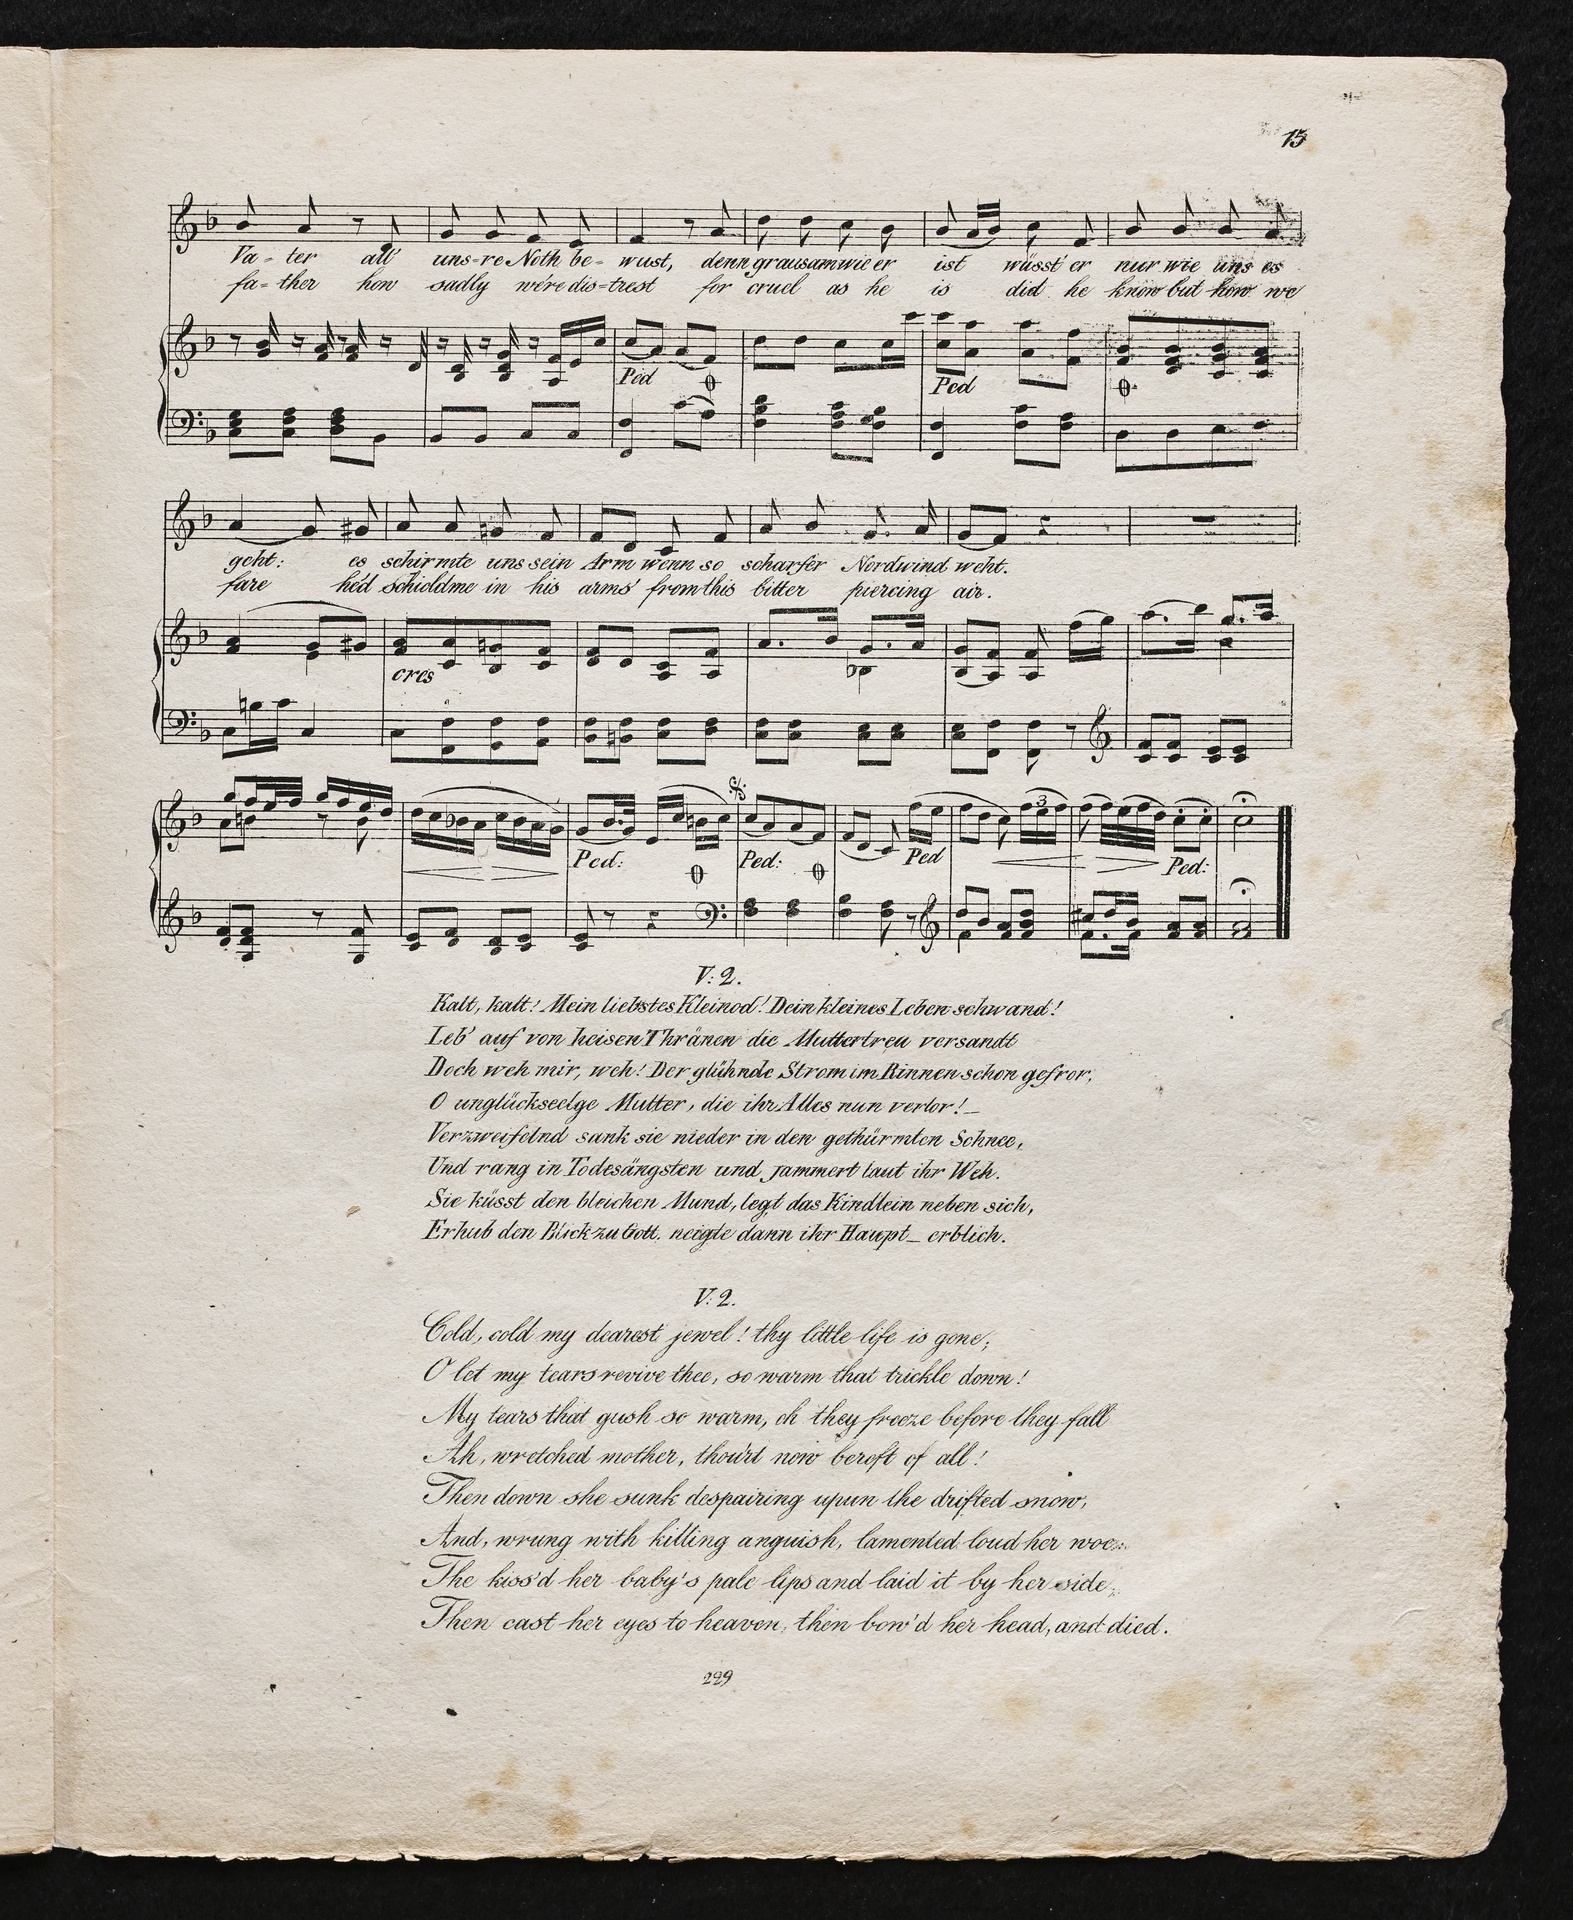 15
Va- ter all' uns-re Noth be- wust, denn grausam wie er ist wüsst' er nur wie uns es
fa- ther how sadly we're dis-trest for cruel as he is did he know but how we
Ped Ped
geht: es schirmte uns sein Arm wenn so scharfer Nordwind weht.
fare he'd shieldme in his arms' from this bitter piercing air.
cres
3
Ped: Ped: Ped Ped:
V: 2.
Kalt, kalt! Mein liebstes Kleinod! Dein kleines Leben schwand!
Leb' auf von heisen Thränen die Muttertreu versandt
Doch weh mir, weh! Der glühnde Strom im Rinnen schon gefror,
O unglückseelge Mutter, die ihr Alles nun verlor!_
Verzweifelnd sank sie nieder in den gethürmten Schnee,
Und rang in Todesängsten und jammert laut ihr Weh.
Sie küsst den bleichen Mund, legt das Kindlein neben sich,
Erhub den Blick zu Gott, neigte dann ihr Haupt_ erblich.
V: 2.
Cold, cold my dearest jewel! thy little life is gone;
O let my tears revive thee, so warm that trickle down!
My tears that gush so warm, oh they freeze before they fall
Ah, wretched mother, thou'rt now bereft of all!
Then down she sunk despairing upun the drifted snow,
And, wrung with killing anguish, lamented loud her woe:
The kiss'd her baby's pale lips and laid it by her side;
Then cast her eyes to heaven, then bow'd her head, and died.
229